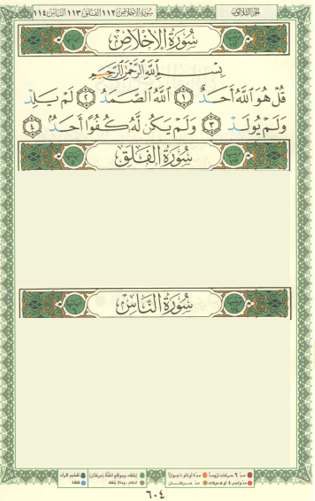 سورة الإخلاص ١١٢ الفلق ١١٣ الناس ١١٤
الجزء الثلاثون
سُورَةُ الإِخْلَاصِ
بِسْمِ اللَّهِ الرَّحْمَٰنِ الرَّحِيمِ
قُلْ هُوَ اللَّهُ أَحَدٌ ١ اللَّهُ الصَّمَدُ ٢ لَمْ يَلِدْ
وَلَمْ يُولَدْ ٣ وَلَمْ يَكُن لَّهُ كُفُوًا أَحَدٌ ٤
سُورَةُ الْفَلَقِ
سُورَةُ النَّاسِ
٦٠٤